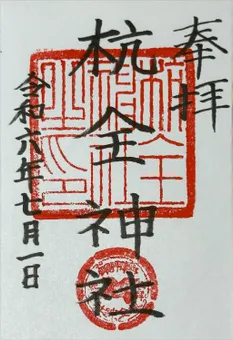 奉拝
杭全神社
令和六年七月一日